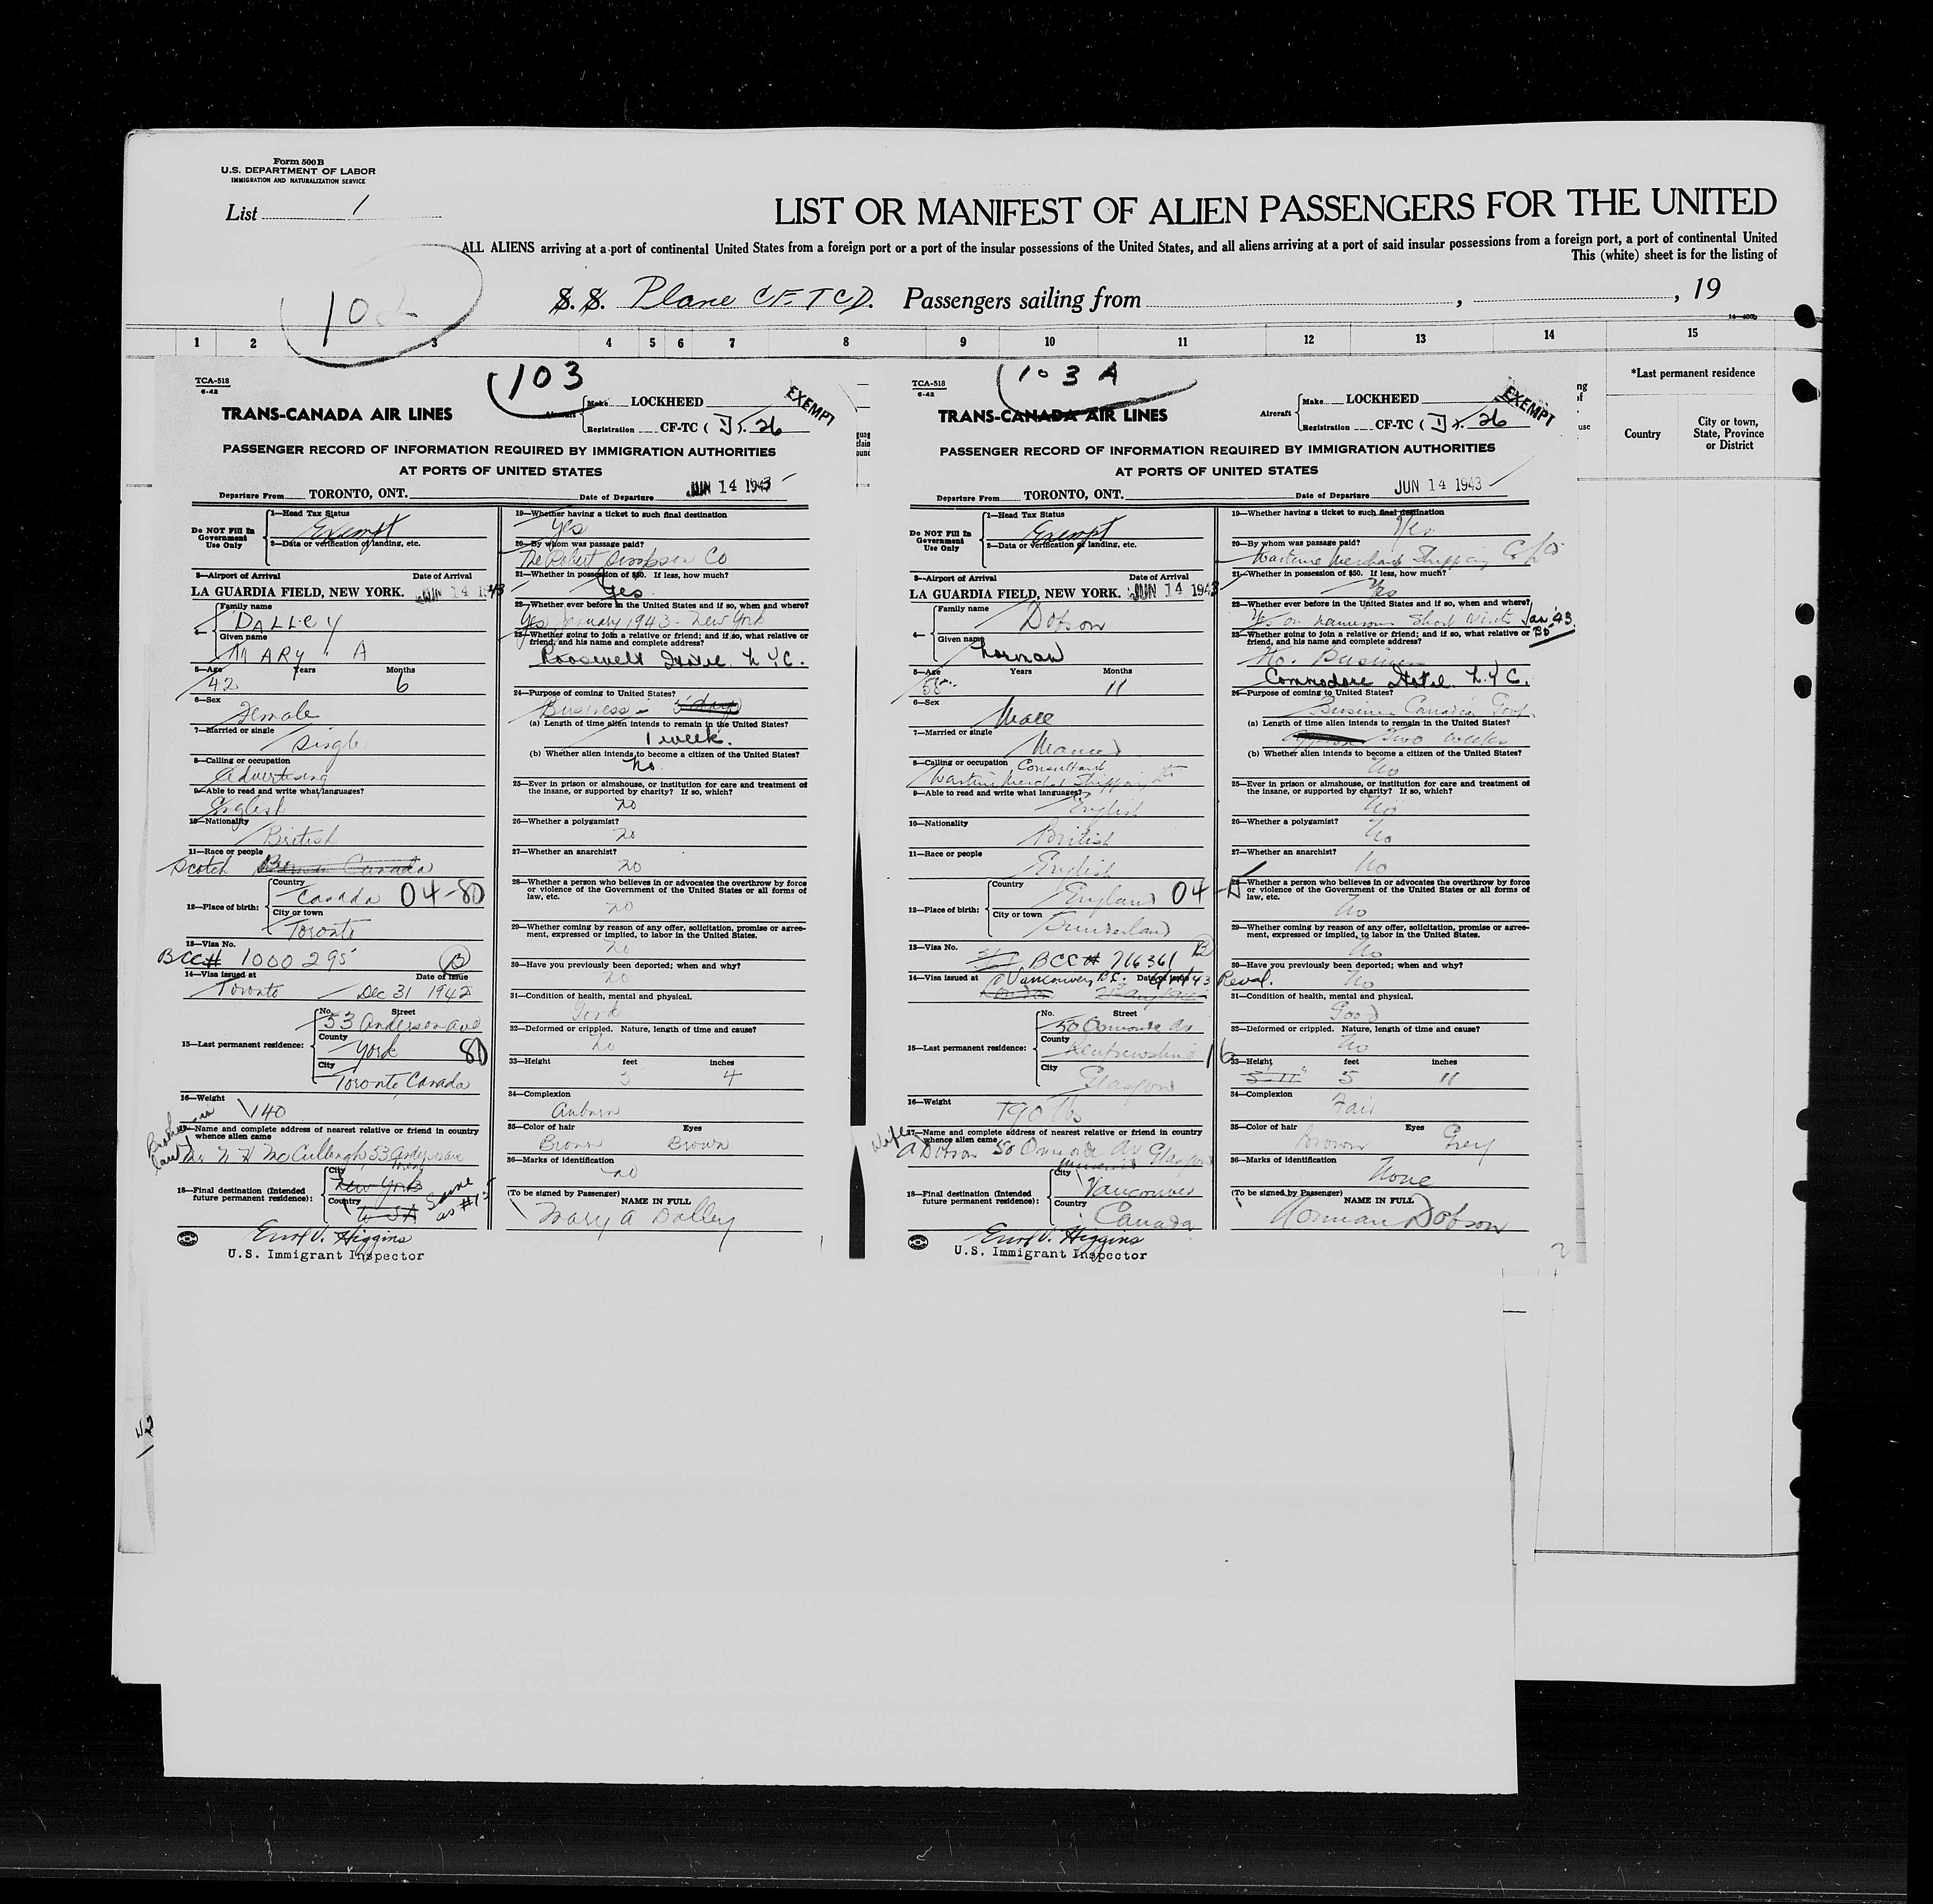 Form 500B
U.S. DEPARTMENT OF LABOR
IMMIGRATION AND NATURALIZATION SERVICE
List 1
LIST OR MANIFEST OF ALIEN PASSENGERS FOR THE UNITED
ALL ALIENS arriving at a port of continental United States from a foreign port or a port of the insular possessions of the United States, and all aliens arriving at a port of said insular possessions from a foreign port, a port of continental United
This (white) sheet is for the listing of
102
S. S. Plane CF-TCD. Passengers sailing from , , 19
1 2 3 4 5 6 7 8 9 10 11 12 13 14 15
*Last permanent residence
Country
City or town, State, Province or District
TCA-518
6-42
103
EXEMPT
TRANS-CANADA AIR LINES
Aircraft Make LOCKHEED
Registration CF-TC ( D ). 26
PASSENGER RECORD OF INFORMATION REQUIRED BY IMMIGRATION AUTHORITIES
AT PORTS OF UNITED STATES
Departure From TORONTO, ONT. Date of Departure JUN 14 1943
Do NOT Fill In Government Use Only
1—Head Tax Status
Exempt
2—Data or verification of landing, etc.
3—Airport of Arrival Date of Arrival
LA GUARDIA FIELD, NEW YORK. JUN 14 1943
4— Family name
DALLEY
Given name
MARY A
5—Age Years Months
42 6
6—Sex
Female
7—Married or single
Single
8—Calling or occupation
Advertising
9—Able to read and write what languages?
English
10—Nationality
British
11—Race or people
Scotch
12—Place of birth: Country
Canada 04-80
City or town
Toronto
13—Visa No.
BCC# 1000295 B
14—Visa issued at Date of Issue
Toronto Dec 31 1942
15—Last permanent residence: No. Street
53 Anderson Ave
County
York 80
City
Toronto Canada
16—Weight
140
17—Name and complete address of nearest relative or friend in country whence alien came
Brother in law
Mr N H McCullough 53 Anderson Ave
18—Final destination (Intended future permanent residence): City
New York
Country
U S A
Same as #15
Errol V. Higgins
U.S. Immigrant Inspector
19—Whether having a ticket to such final destination
Yes
20—By whom was passage paid?
The Robert Simpson Co
21—Whether in possession of $50. If less, how much?
Yes
22—Whether ever before in the United States and if so, when and where?
Yes January 1943 - New York
23—Whether going to join a relative or friend; and if so, what relative or friend, and his name and complete address?
Roosevelt Hotel N.Y.C.
24—Purpose of coming to United States?
Business - 5 days
(a) Length of time alien intends to remain in the United States?
1 week.
(b) Whether alien intends to become a citizen of the United States?
No.
25—Ever in prison or almshouse, or institution for care and treatment of the insane, or supported by charity? If so, which?
no
26—Whether a polygamist?
no
27—Whether an anarchist?
no
28—Whether a person who believes in or advocates the overthrow by force or violence of the Government of the United States or all forms of law, etc.
no
29—Whether coming by reason of any offer, solicitation, promise or agreement, expressed or implied, to labor in the United States.
no
30—Have you previously been deported; when and why?
no
31—Condition of health, mental and physical.
Good
32—Deformed or crippled. Nature, length of time and cause?
no
33—Height feet inches
5 4
34—Complexion
Auburn
35—Color of hair Eyes
Brown Brown
36—Marks of identification
no
(To be signed by Passenger) NAME IN FULL
Mary A Dalley
TCA-518
6-42
103 A
EXEMPT
TRANS-CANADA AIR LINES
Aircraft Make LOCKHEED
Registration CF-TC ( D ). 26
PASSENGER RECORD OF INFORMATION REQUIRED BY IMMIGRATION AUTHORITIES
AT PORTS OF UNITED STATES
Departure From TORONTO, ONT. Date of Departure JUN 14 1943
Do NOT Fill In Government Use Only
1—Head Tax Status
Exempt
2—Data or verification of landing, etc.
3—Airport of Arrival Date of Arrival
LA GUARDIA FIELD, NEW YORK. JUN 14 1943
4— Family name
Dobson
Given name
Norman
5—Age Years Months
58 11
6—Sex
Male
7—Married or single
Married
8—Calling or occupation Consultant
Wartime Merchant Shipping Ltd
9—Able to read and write what languages?
English
10—Nationality
British
11—Race or people
English
12—Place of birth: Country
England 04-
City or town
Sunderland
13—Visa No.
BCC# 716361 B
14—Visa issued at Date of Issue
Vancouver, B.C. Reval.
London
15—Last permanent residence: No. Street
50 Ormonde Av
County
Renfrewshire 16
City
Glasgow
16—Weight
190 lbs
17—Name and complete address of nearest relative or friend in country whence alien came
Wife
A Dobson 50 Ormonde Av Glasgow
18—Final destination (Intended future permanent residence): City
Vancouver
Country
Canada
Errol V. Higgins
U.S. Immigrant Inspector
19—Whether having a ticket to such final destination
Yes
20—By whom was passage paid?
Wartime Merchant Shipping
21—Whether in possession of $50. If less, how much?
Yes
22—Whether ever before in the United States and if so, when and where?
Yes on numerous short visits Jan '43.
23—Whether going to join a relative or friend; and if so, what relative or friend, and his name and complete address?
No. Business
Commodore Hotel. N.Y.C.
24—Purpose of coming to United States?
Business Canadian Govt
(a) Length of time alien intends to remain in the United States?
Two weeks
(b) Whether alien intends to become a citizen of the United States?
No
25—Ever in prison or almshouse, or institution for care and treatment of the insane, or supported by charity? If so, which?
No
26—Whether a polygamist?
No
27—Whether an anarchist?
No
28—Whether a person who believes in or advocates the overthrow by force or violence of the Government of the United States or all forms of law, etc.
No
29—Whether coming by reason of any offer, solicitation, promise or agreement, expressed or implied, to labor in the United States.
No
30—Have you previously been deported; when and why?
No
31—Condition of health, mental and physical.
Good
32—Deformed or crippled. Nature, length of time and cause?
No
33—Height feet inches
5-11" 5 11
34—Complexion
Fair
35—Color of hair Eyes
Brown Grey
36—Marks of identification
None
(To be signed by Passenger) NAME IN FULL
Norman Dobson